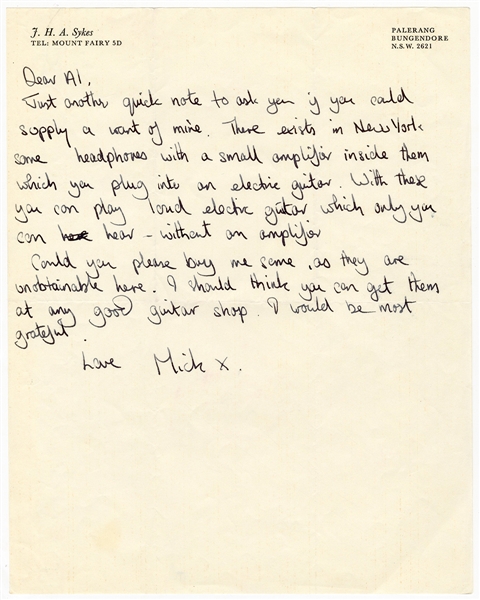 J. H. A. Sykes
TEL: MOUNT FAIRY 5D
PALERANG
BUNGENDORE
N.S.W. 2621
Dear Al,
Just another quick note to ask you if you could
supply a want of mine. There exists in New York
some headphones with a small amplifior inside them
which you plug into an electric guitar. With these
you can play loud electric guitar which only you
can hear - without an amplifior
Could you please buy me some, as they are
unobtainable here. I should think you can get them
at any good guitar shop. I would be most
grateful.
Love Mick X.